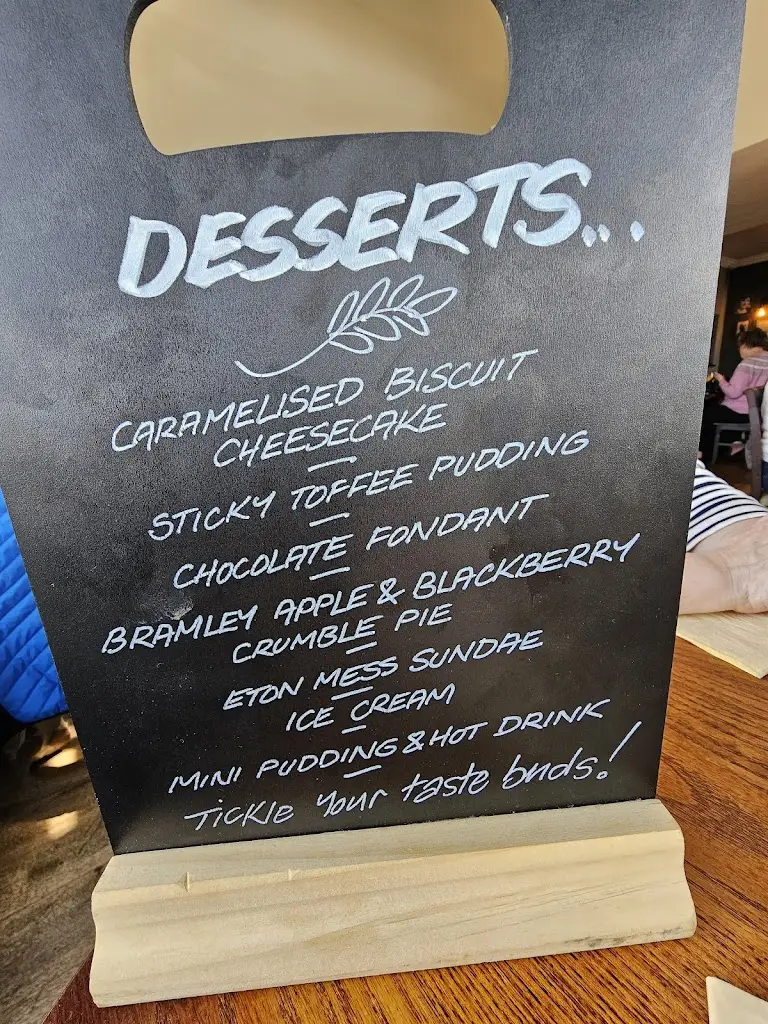 DESSERTS...
CARAMELISED BISCUIT
CHEESECAKE
STICKY TOFFEE PUDDING
CHOCOLATE FONDANT
BRAMLEY APPLE & BLACKBERRY
CRUMBLE PIE
ETON MESS SUNDAE
ICE CREAM
MINI PUDDING & HOT DRINK
Tickle your taste buds!